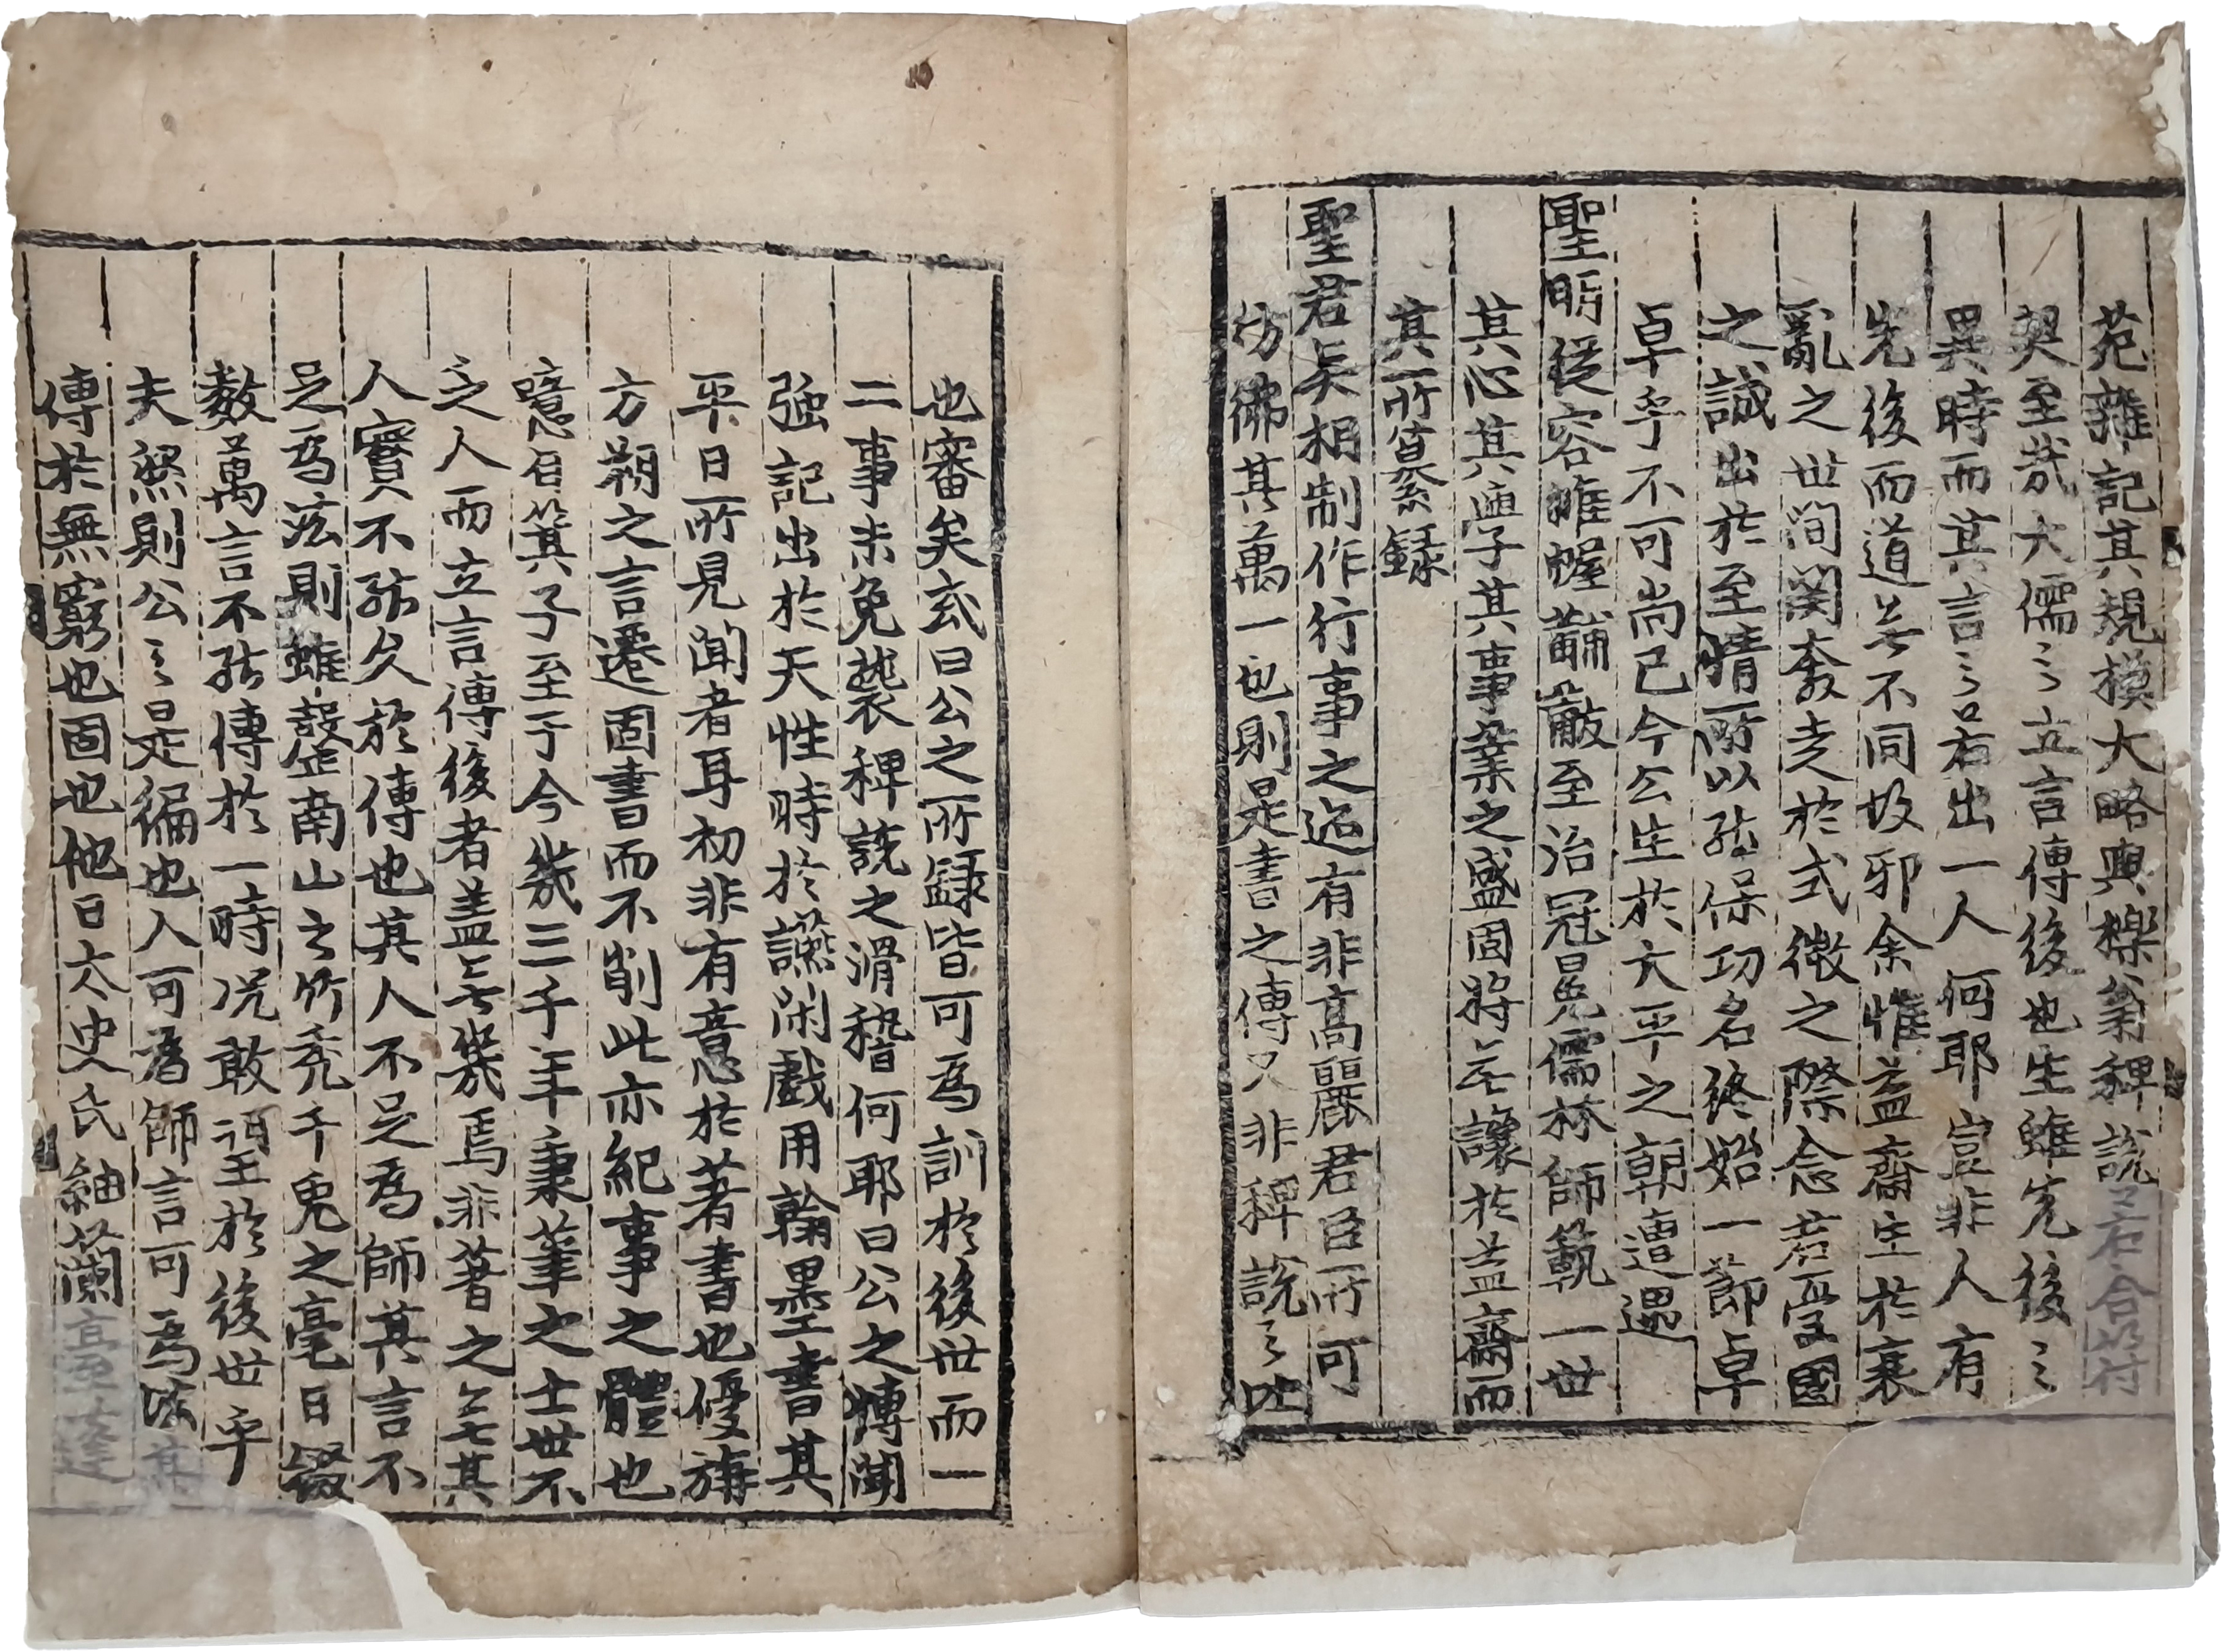 苑雜記其規模大略與櫟翁稗說若合符
契至哉大儒之立言傳後也生雖先後之
異時而其言之若出一人何耶豈非人有
先後而道無不同故耶余惟益齋生於衰
亂之世間関奔走於式微之際念君憂國
之誠出於至情所以能保功名終始一節卓
卓乎不可尚已今公生於大平之朝遭遇
聖明從容帷幄黼黻至治冠冕儒林師範一世
其心其學其事業之盛固將無讓於益齋而
其所纂錄
聖君良相制作行事之迹有非高麗君臣所可
彷彿其萬一也則是書之傳又非稗說之比
也審矣或曰公之所錄皆可為訓於後世而一
二事未免襲稗說之滑稽何耶曰公之博聞
強記出於天性時於讌閑戲用翰墨書其
平日所見聞者耳初非有意於著書也優旃
方朔之言遷固書而不削此亦紀事之體也
噫自箕子至于今幾三千年秉筆之士世不
乏人而立言傳後者盖無幾焉非著之無其
人實不能久於傳也其人不足為師其言不
足為法則雖罄南山之竹禿千兔之毫日綴
数萬言不能傳於一時况敢望於後世乎
夫然則公之是編也人可為師言可為法其
傳於無窮也固也他日太史氏紬蘭臺至達